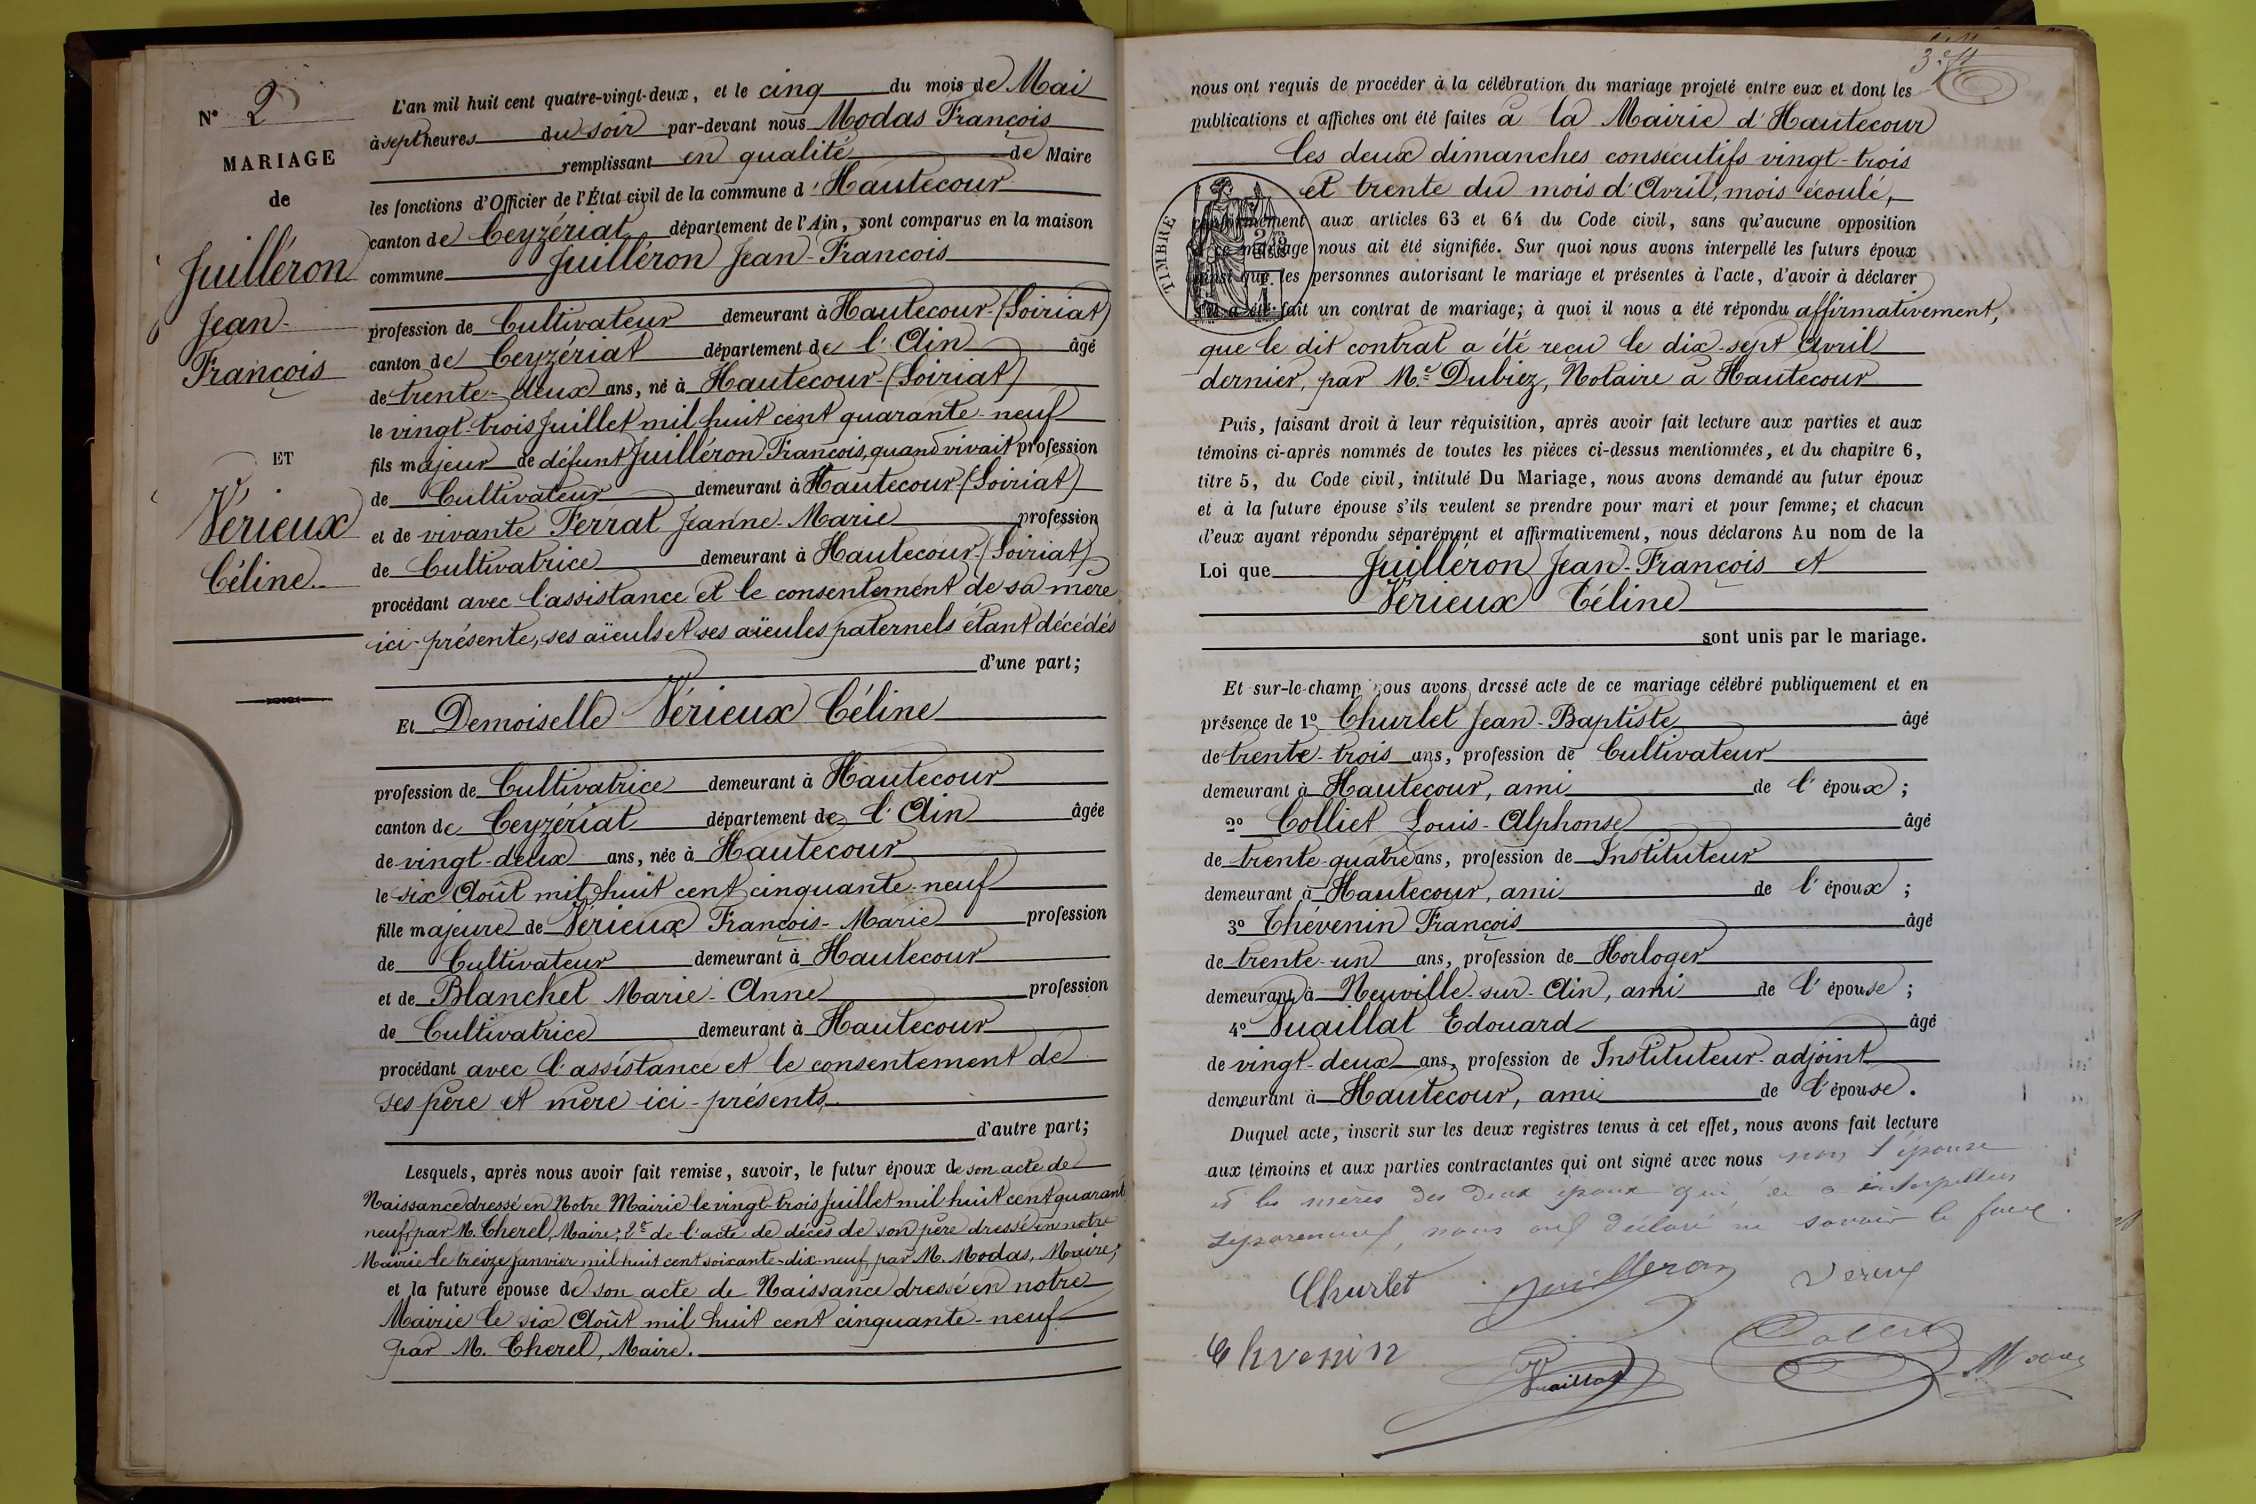 N° 2
MARIAGE
de
Juilléron
Jean-
François
ET
Vérieux
Céline.
L'an mil huit cent quatre-vingt-deux, et le cinq du mois de Mai
à sept heures du soir par-devant nous Modas François
remplissant en qualité de Maire
les fonctions d'Officier de l'État civil de la commune d'Hautecour
canton de Ceyzériat département de l'Ain, sont comparus en la maison
commune Juilléron Jean-François
profession de Cultivateur demeurant à Hautecour (Soiriat)
canton de Ceyzériat département de l'Ain âgé
de trente-deux ans, né à Hautecour (Soiriat)
le vingt-trois Juillet mil huit cent quarante-neuf
fils majeur de défunt Juilléron François, quand vivait profession
de Cultivateur demeurant à Hautecour (Soiriat)
et de vivante Ferrat Jeanne-Marie profession
de Cultivatrice demeurant à Hautecour (Soiriat)
procédant avec l'assistance et le consentement de sa mère
ici-présente, ses aïeuls et ses aïeules paternels étant décédés
d'une part;
Et Demoiselle Vérieux Céline
profession de Cultivatrice demeurant à Hautecour
canton de Ceyzériat département de l'Ain âgée
de vingt-deux ans, née à Hautecour
le six Août mil huit cent cinquante-neuf
fille majeure de Vérieux François-Marie profession
de Cultivateur demeurant à Hautecour
et de Blanchet Marie-Anne profession
de Cultivatrice demeurant à Hautecour
procédant avec l'assistance et le consentement de
ses père et mère ici-présents,
d'autre part;
Lesquels, après nous avoir fait remise, savoir, le futur époux de son acte de
Naissance dressé en Notre Mairie le vingt-trois Juillet mil huit cent quarante
neuf, par M. Cherel, Maire; 2° de l'acte de décès de son père dressé en notre
Mairie le treize Janvier mil huit cent soixante-dix-neuf, par M. Modas, Maire;
et la future épouse de son acte de Naissance dressé en notre
Mairie le six Août mil huit cent cinquante-neuf
par M. Cherel, Maire.
nous ont requis de procéder à la célébration du mariage projeté entre eux et dont les
publications et affiches ont été faites à la Mairie d'Hautecour
les deux dimanches consécutifs vingt-trois
et trente du mois d'Avril, mois écoulé,
TIMBRE
conformément aux articles 63 et 64 du Code civil, sans qu'aucune opposition
à ce mariage nous ait été signifiée. Sur quoi nous avons interpellé les futurs époux
ainsi que les personnes autorisant le mariage et présentes à l'acte, d'avoir à déclarer
s'il a été fait un contrat de mariage; à quoi il nous a été répondu affirmativement,
que le dit contrat a été reçu le dix-sept Avril
dernier, par Me Dubiez, Notaire à Hautecour
Puis, faisant droit à leur réquisition, après avoir fait lecture aux parties et aux
témoins ci-après nommés de toutes les pièces ci-dessus mentionnées, et du chapitre 6,
titre 5, du Code civil, intitulé Du Mariage, nous avons demandé au futur époux
et à la future épouse s'ils veulent se prendre pour mari et pour femme; et chacun
d'eux ayant répondu séparément et affirmativement, nous déclarons Au nom de la
Loi que Juilléron Jean-François et
Vérieux Céline
sont unis par le mariage.
Et sur-le-champ nous avons dressé acte de ce mariage célébré publiquement et en
présence de 1° Churlet Jean-Baptiste âgé
de trente-trois ans, profession de Cultivateur
demeurant à Hautecour, ami de l'époux;
2° Colliet Louis-Alphonse âgé
de trente-quatre ans, profession de Instituteur
demeurant à Hautecour, ami de l'époux;
3° Thévenin François âgé
de trente-un ans, profession de Horloger
demeurant à Neuville-sur-Ain, ami de l'épouse;
4° Vuaillat Edouard âgé
de vingt-deux ans, profession de Instituteur-adjoint
demeurant à Hautecour, ami de l'épouse.
Duquel acte, inscrit sur les deux registres tenus à cet effet, nous avons fait lecture
aux témoins et aux parties contractantes qui ont signé avec nous non l'épouse
et les mères des deux époux qui, de a interpellées
séparément, nous ont déclaré ne savoir le faire.
Churlet Juilleron
Thvenin Vuaillat